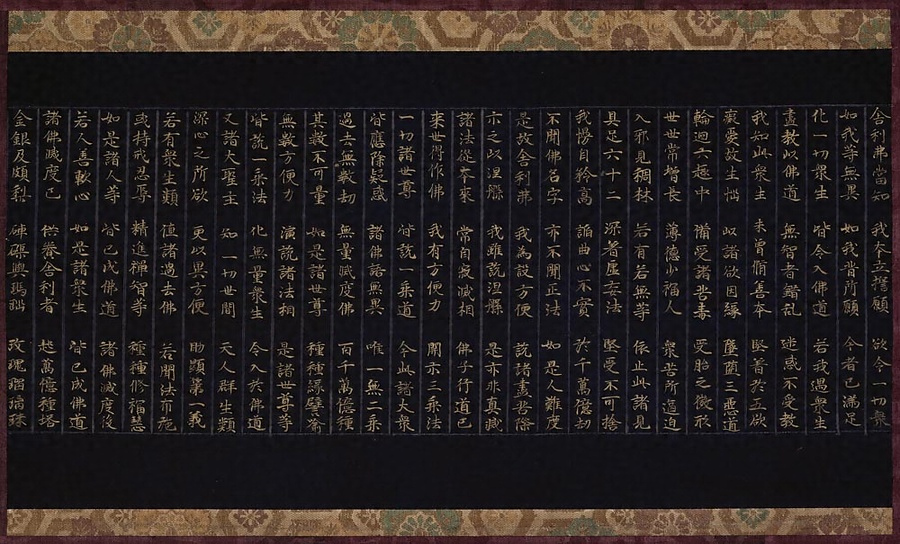 舍利弗當知 我本立誓願 欲令一切衆
如我等無異 如我昔所願 今者已滿足
化一切衆生 皆令入佛道 若我遇衆生
盡教以佛道 無智者錯亂 迷惑不受教
我知此衆生 未曾脩善本 堅著於五欲
癡愛故生惱 以諸欲因緣 墜墮三惡道
輪迴六趣中 備受諸苦毒 受胎之微形
世世常增長 薄德少福人 衆苦所逼迫
入邪見稠林 若有若無等 依止此諸見
具足六十二 深著虛妄法 堅受不可捨
我慢自矜高 諂曲心不實 於千萬億劫
不聞佛名字 亦不聞正法 如是人難度
是故舍利弗 我為設方便 說諸盡苦際
示之以涅槃 我雖說涅槃 是亦非真滅
諸法從本來 常自寂滅相 佛子行道已
來世得作佛 我有方便力 開示三乘法
一切諸世尊 皆說一乘道 今此諸大衆
皆應除疑惑 諸佛語無異 唯一無二乘
過去無數劫 無量滅度佛 百千萬億種
其數不可量 如是諸世尊 種種緣譬喻
無數方便力 演說諸法相 是諸世尊等
皆說一乘法 化無量衆生 令入於佛道
又諸大聖主 知一切世間 天人群生類
深心之所欲 更以異方便 助顯第一義
若有衆生類 值諸過去佛 若聞法布施
或持戒忍辱 精進禪智等 種種修福慧
如是諸人等 皆已成佛道 諸佛滅度後
若人善軟心 如是諸衆生 皆已成佛道
諸佛滅度已 供養舍利者 起萬億種塔
金銀及頗梨 硨磲與瑪瑙 玫瑰琉璃珠